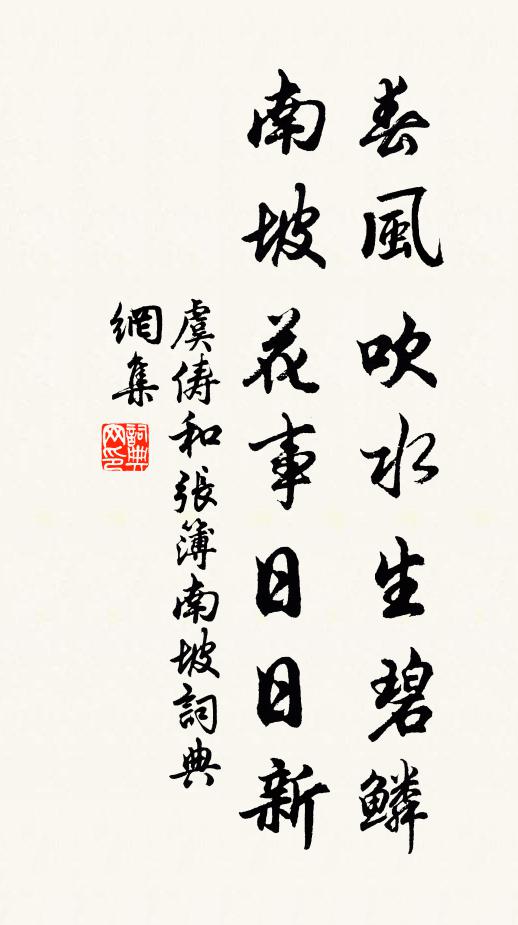 春風吹水生碧鱗
南坡花事日日新
虞儔和張簿南坡詞典
網集
詞典網印